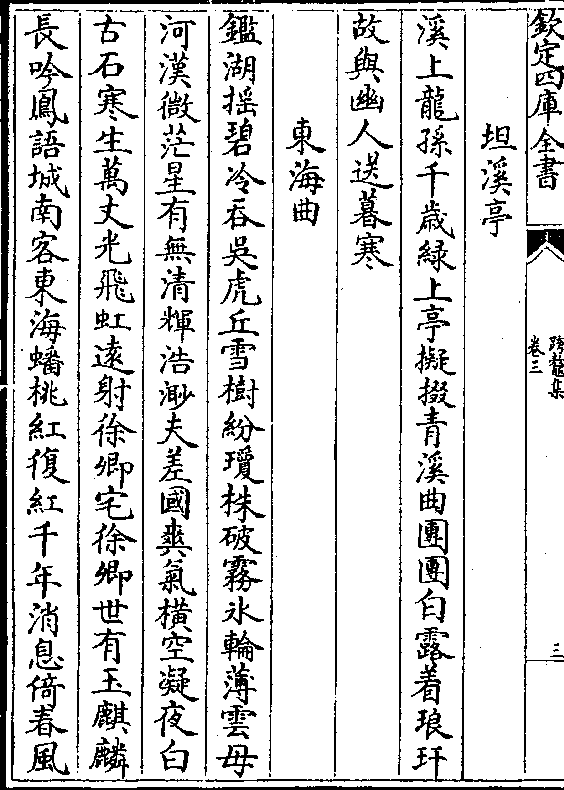 欽定四庫全書
跨鼇集
卷三
三
坦溪亭
溪上龍孫千歳緑上亭擬掇青溪曲團團白露着琅玕
故與幽人送暮寒
東海曲
鑑湖揺碧冷吞吳虎丘雪樹紛瓊株破霧氷輪薄雲母
河漢微茫星有無清輝浩渺夫差國爽氣橫空凝夜白
古石寒生萬丈光飛虹逺射徐卿宅徐卿世有玉麒麟
長吟鳳語城南客東海蟠桃紅復紅千年消息倚春風